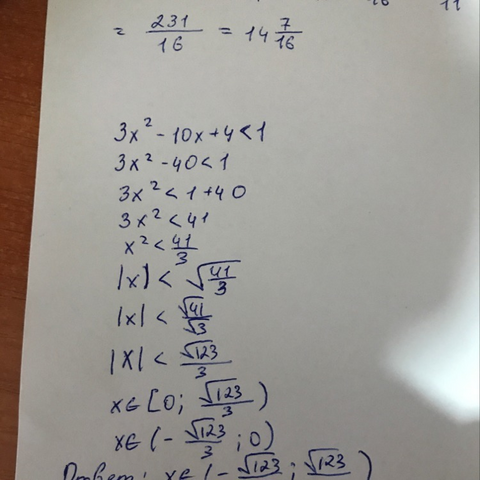 16 11
= 231/16 = 14 7/16
3x² - 10x + 4 < 1
3x² - 40 < 1
3x² < 1 + 40
3x² < 41
x² < 41/3
|x| < √(41/3)
|x| < √41/√3
|X| < √123/3
x∈ [0; √123/3)
x∈ (- √123/3; 0)
Ответ: x∈ (- √123/3; √123/3)